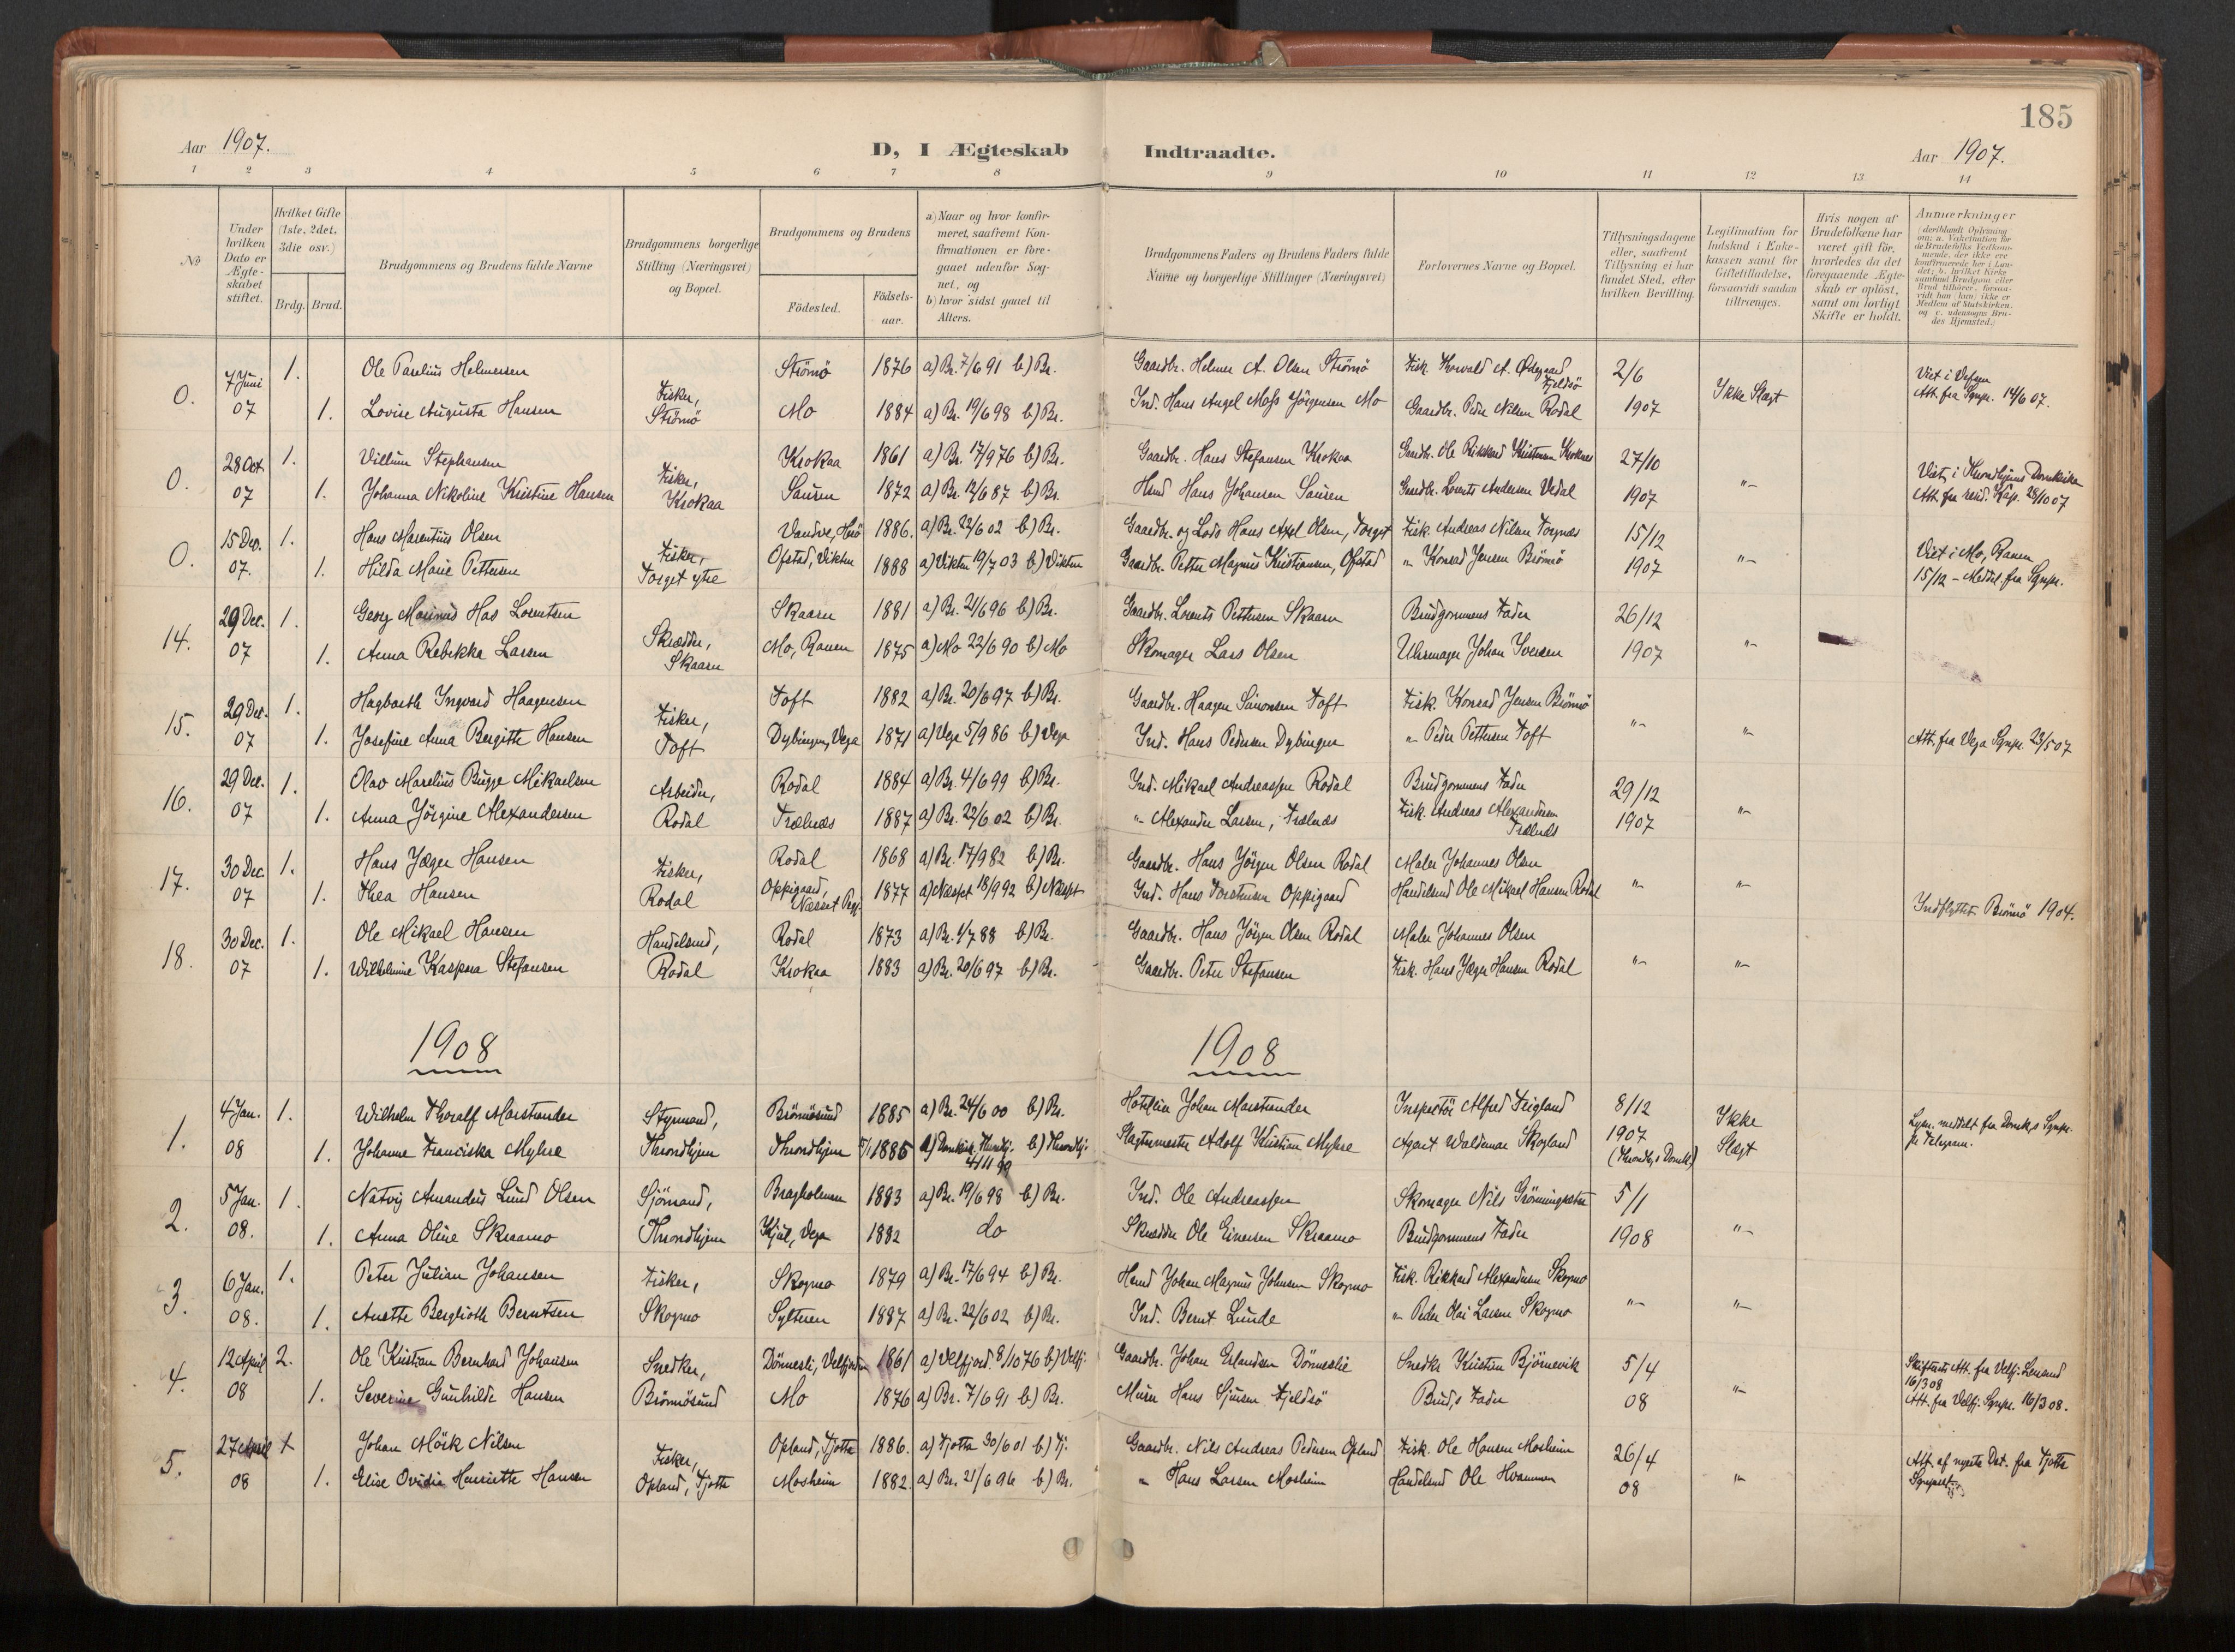 185
Aar 1907.
D, I Ægteskab Indtraadte.
Aar 1907.
1 2 3 4 5 6 7 8 9 10 11 12 13 14
№
Under hvilken Dato er Ægteskabet stiftet.
Hvilket Gifte (1ste, 2det, 3die osv.)
Brdg. Brud.
Brudgommens og Brudens fulde Navne
Brudgommens borgerlige Stilling (Næringsvei) og Bopæl.
Brudgommens og Brudens
Födested.
Födsels-aar.
a) Naar og hvor konfirmeret, saafremt Konfirmationen er foregaaet udenfor Sognet, og
b) hvor sidst gaaet til Alters.
Brudgommens Faders og Brudens Faders fulde Navne og borgerlige Stillinger (Næringsvei)
Forlovernes Navne og Bopæl.
Tillysningsdagene eller, saafremt Tillysning ei har fundet Sted, efter hvilken Bevilling.
Legitimation for Indskud i Enkekassen samt for Giftetilladelse, forsaavidt saadan tiltrænges.
Hvis nogen af Brudefolkene har været gift för, hvorledes da det foregaaende Ægteskab er oplöst, samt om lovligt Skifte er holdt.
Anmærkninger
0. 7 Juni 1. Ole Parelius Helmersen Strömö 1876 a) Br. 7/6 91 b) Br. Gaardbr. Helmer A. Olsen Strömö Fisk. Torvald A. Ödegaard Fjeldsö 2/6 Viet i Vefsen
07 1. Lovise Augusta Hansen Fisker, Strömö Mo 1884 a) Br. 19/6 98 b) Br. Ind. Hans Angel Moss Jörgensen Mo Gaardbr. Peder Nilsen Rodal 1907 Ikke Slægt Att. fra Sgnpr. 14/6 07.
0. 28 Oct. 1. Villum Stephansen Krokaa 1861 a) Br. 17/9 76 b) Br. Gaardbr. Hans Stefansen Krokaa Gaardbr. Ole Rikkard Kristensen 27/10 Viet i Throndhjems Domkirke
07 1. Johanna Nikoline Kristine Hansen Fisker, Krokaa Sausen 1872 a) Br. 12/6 87 b) Br. Hsmd Hans Johansen Sausen Gaardbr. Lorents Andersen Vedal 1907 "- Att. fra resid. Kap. 28/10 07
0. 15 Dec. 1. Hans Marentius Olsen Vandve, Herö 1886. a) Br. 22/6 02 b) Br. Gaardbr. og Lods Hans Axel Olsen, Torget Fisk. Andreas Nilsen Torgnes 15/12 Viet i Mo, Ranen
07. 1. Hilda Marie Pettersen Fisker, Torget ytre Ofstad, Vikten 1888 a) Vikten 19/7 03 b) Vikten Gaardbr. Petter Magnus Kristiansen, Ofstad "- Konrad Jensen Brömö 1907 "- 15/12 - Meddel. fra Sgnpr.
14. 29 Dec. 1. Georg Marinus Has Lorentsen Skaaren 1881 a) Br. 21/6 96 b) Br. Gaardbr. Lorents Pettersen Skaaren Brudgommens Fader 26/12
07 1. Anna Rebekka Larsen Skræder, Skaaren Mo, Ranen 1875 a) Mo 22/6 90 b) Mo Skomager Lars Olsen Uhrmager Johan Iversen 1907 "-
15. 29 Dec. 1. Hagbarth Ingvard Haagensen Toft 1882 a) Br. 20/6 97 b) Br. Gaardbr. Haagen Simonsen Toft Fisk. Konrad Jensen Brömö
07 1. Josefine Anna Bergitte Hansen Fisker, Toft Dybingen, Vega 1871 a) Vega 5/9 86 b) Vega Ind. Hans Pedersen Dybingen "- Peder Pettersen Toft "- "- Att. fra Vega Sgnpr. 23/5 07
16. 29 Dec. 1. Olav Marelius Bugge Mikaelsen Rodal 1884 a) Br. 4/6 99 b) Br. Ind. Mikael Andreassen Rodal Brudgommens Fader 29/12
07 1. Anna Jörgine Alexandersen Arbeider, Rodal Trælnes 1887 a) Br. 22/6 02 b) Br. "- Alexander Larsen, Trælnes Fisk. Andreas Alexandersen Trælnes 1907 "-
17. 30 Dec. 1. Hans Jæger Hansen Rodal 1868 a) Br. 17/9 82 b) Br. Gaardbr. Hans Jörgen Olsen Rodal Maler Johannes Olsen
07 1. Thea Hansen Fisker, Rodal Oppigaard, Næsset Prgj. 1877 a) Næsset 18/9 92 b) Næsset Ind. Hans Torstensen Oppigaard Handelsmd Ole Mikael Hansen Rodal "- "- Indflyttet Brömö 1904.
18. 30 Dec. 1. Ole Mikael Hansen Rodal 1873 a) Br. 1/7 88 b) Br. Gaardbr. Hans Jörgen Olsen Rodal Maler Johannes Olsen
07 1. Wilhelmine Kaspara Stefansen Handelsmd, Rodal Krokaa 1883 a) Br. 20/6 97 b) Br. Gaardbr. Peter Stefansen Fisk. Hans Jæger Hansen Rodal "- "-
1908 1908
1. 4 Jan. 1. Wilhelm Thoralf Marstrander Styrmand, Brönnösund 1885 a) Br. 24/6 00 b) Br. Hotelier Johan Marstrander Inspectör Alfred Teigland 8/12 Ikke Lysn. meddelt fra Domk.s Sgnpr.
08 1. Johanne Franciska Myhre Throndhjem Throndhjem 5/1 1885 a) Domkirk. Throndhj. 4/11 99 b) Throndhj. Slagtermester Adolf Kristian Myhre Agent Waldemar Skogland 1907 (Throndhj.s Domk.) Slægt pr Telegram.
2. 5 Jan. 1. Natvig Amandus Lund Olsen Sjömand, Bragholmen 1883 a) Br. 19/6 98 b) Br. Ind. Ole Andreassen Skomager Nils Grönningsæter 5/1
08. 1. Anna Oline Skraamo Throndhjem Kjul, Vega 1882 do Skrædder Ole Einersen Skraamo Brudgommens Fader 1908 "-
3. 6 Jan. 1. Peter Julian Johansen Fisker, Skogmo 1879 a) Br. 17/6 94 b) Br. Hsmd Johan Magnus Johnsen Skogmo Fisk. Rikkard Alexandersen Skogmo
08. 1. Anette Bergliothe Berntsen Skogmo Sylteren 1887 a) Br. 22/6 02 b) Br. Ind. Bernt Lunde "- Peder Olai Larsen Skogmo "- "-
4. 12 April 2. Ole Kristian Bernhard Johansen Snedker, Dönnesli, Velfjorden 1861 a) Velfjord. 8/10 76 b) Velfj. Gaardbr. Johan Erlandsen Dönneslie Snedker Kristian Björnevik 5/4 Skifteatt. fra Velfj. Lensmd 16/3 08
08 1. Severine Gunhilde Hansen Brönnösund Mo 1876 a) Br. 7/6 91 b) Br. Murer Hans Sjursen Fjeldsö Brud.s Fader 08 "- Att. fra Velfj. Sgnpr. 16/3 08.
5. 27 April 1 Johan Mörk Nilsen Opland, Tjotta 1886. a) Tjotta 30/6 01 b) Tj. Gaardbr. Nils Andreas Pedersen Opland Fisk. Ole Hansen Mosheim 26/4 Att. af nyeste Dat. fra Tjotta
08 1. Elise Ovidia Henriette Hansen Fisker, Opland, Tjotta Mosheim 1882. a) Br. 21/6 96 b) Br. "- Hans Larsen Mosheim Handelsmd Ole Hvammen 08 "- Sgnprest.